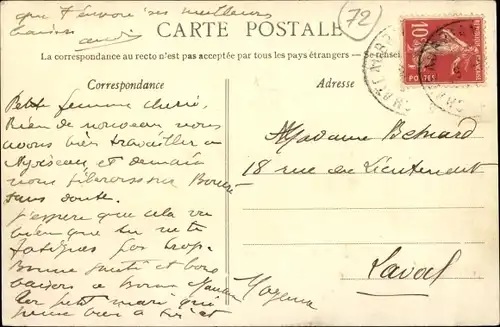 que t'envoie ses meilleurs
baisers
CARTE POSTALE
72
La correspondance au recto n'est pas acceptée par tous les pays étrangers. — Se renseigner
10
POSTES
Correspondance
Adresse
Petite femme chérie,
Rien de nouveau nous
avons bien travailler a
et demain
nous filerons sur Bouère
sans doute.
J'espère que cela va
bien que tu ne te
fatigues pas trop.
Bonne santé et bons
baisers a Bonne Maman
Ton petit mari qui
pense bien à toi et
Madame Besnard
18 rue du Lieutenant
Laval
Mayenne